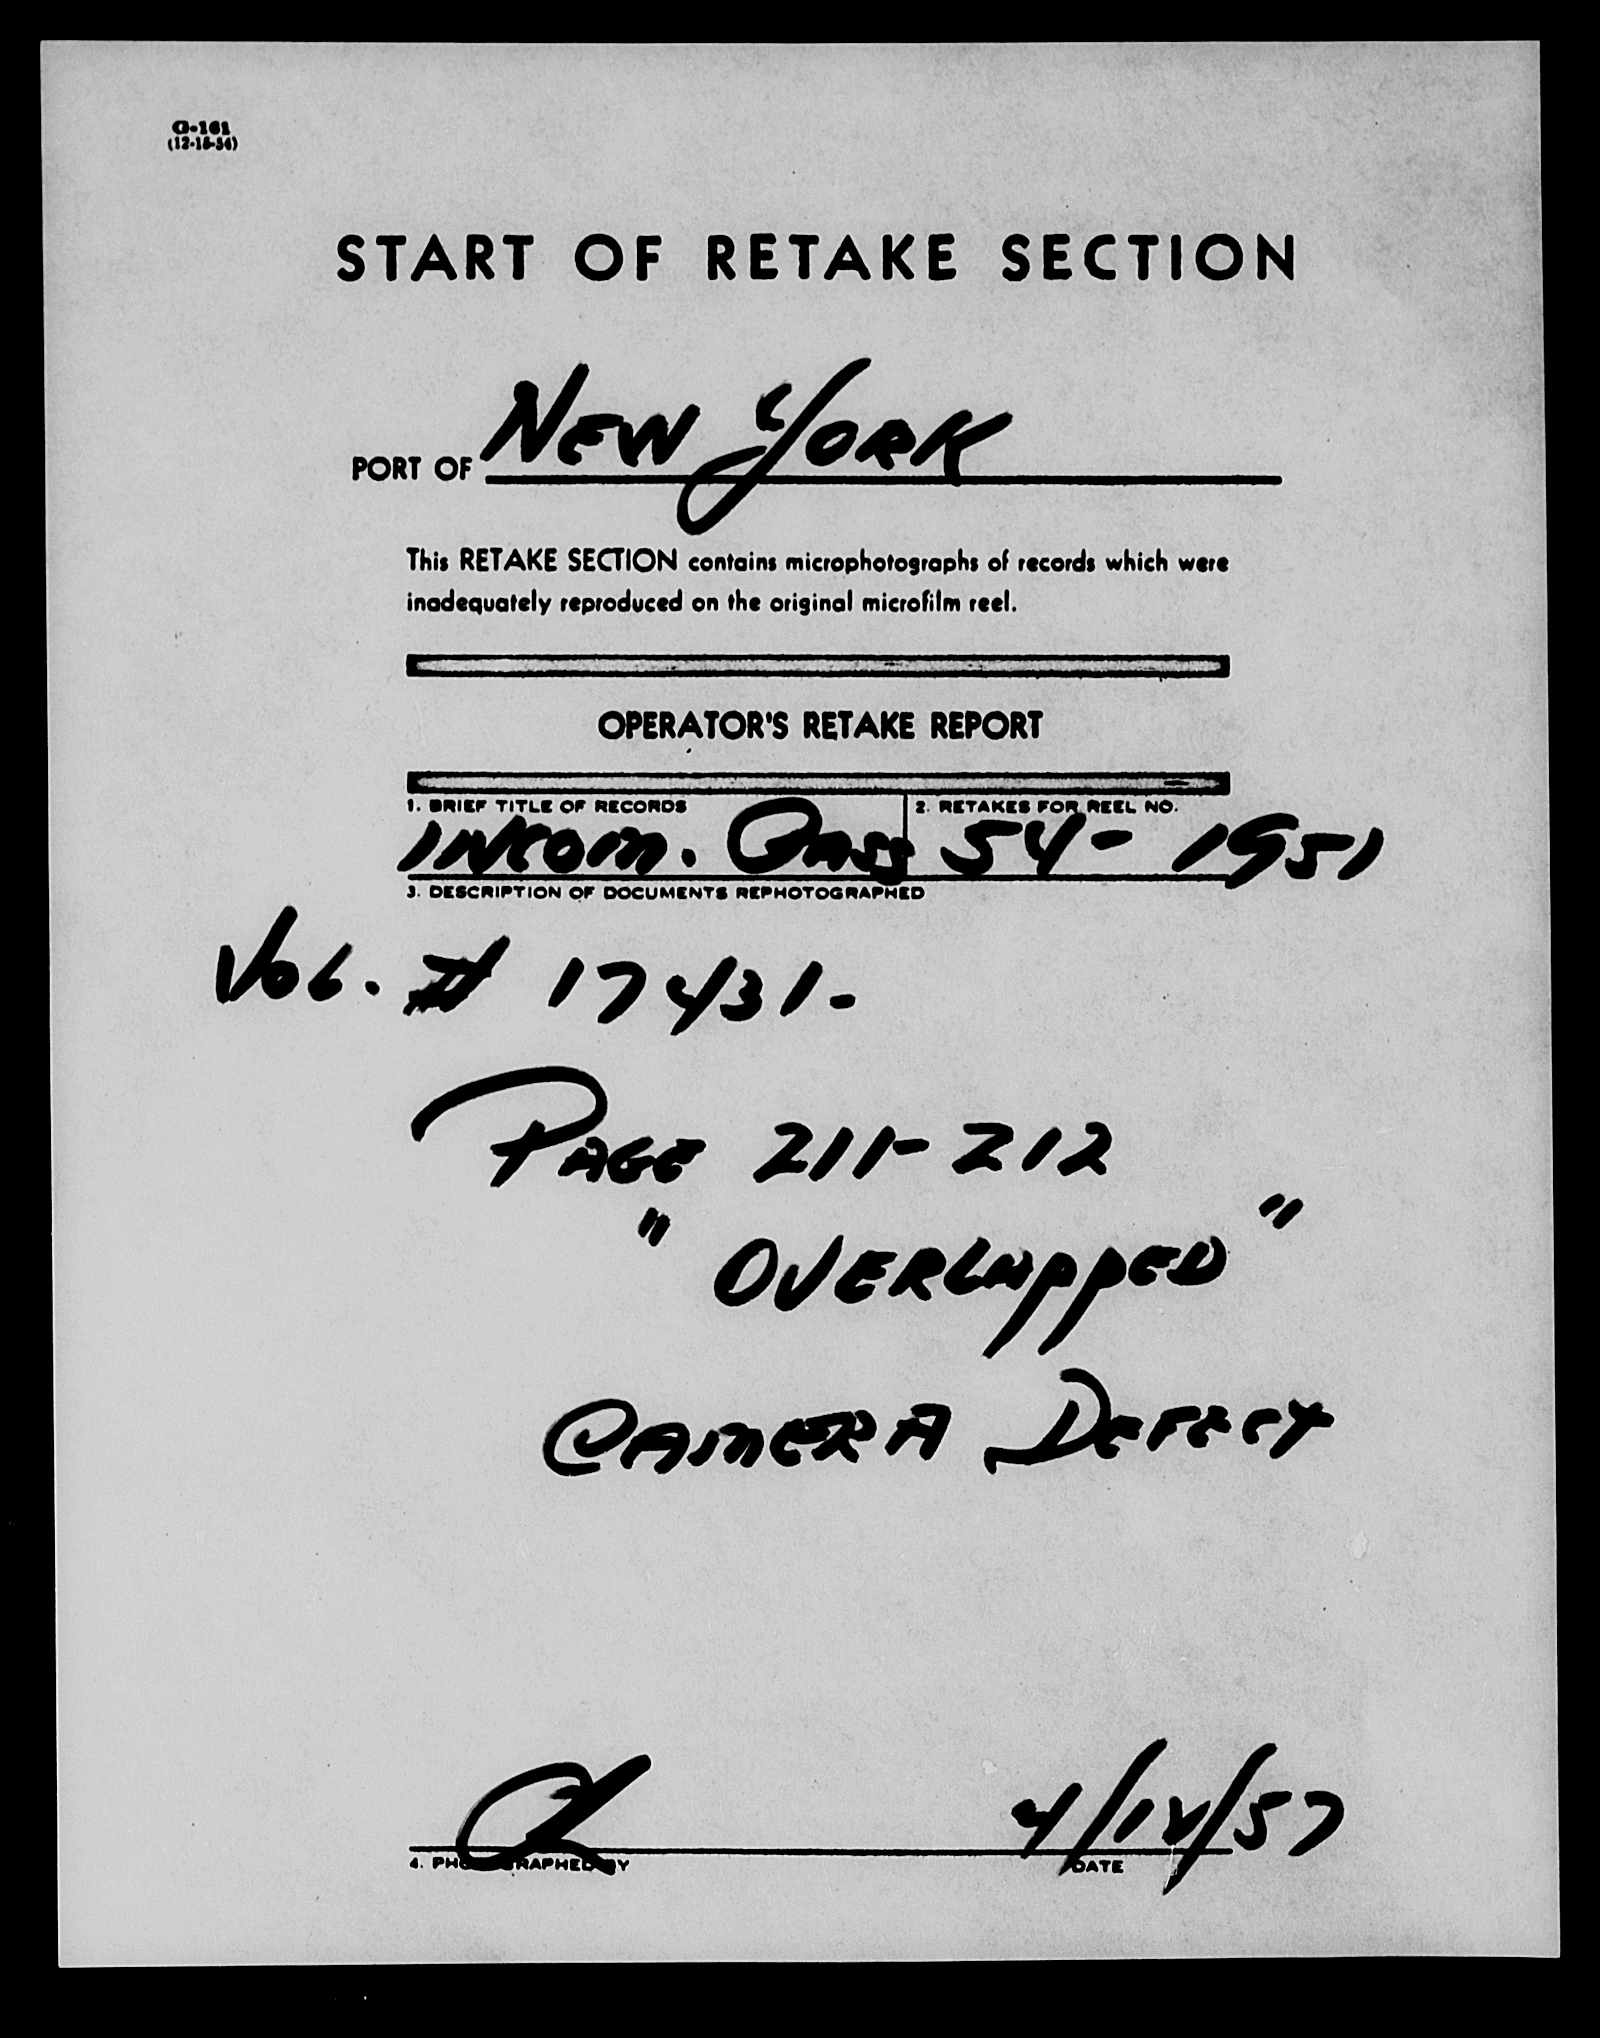 G-161
(12-15-54)
START OF RETAKE SECTION
PORT OF NEW YORK
This RETAKE SECTION contains microphotographs of records which were
inadequately reproduced on the original microfilm reel.
OPERATOR'S RETAKE REPORT
1. BRIEF TITLE OF RECORDS 2. RETAKES FOR REEL NO.
INCOM. PASS 54- 1951
3. DESCRIPTION OF DOCUMENTS REPHOTOGRAPHED
VOL. # 17431-
PAGE 211-212
"OVERLAPPED"
CAMERA DEFECT
4/12/57
4. PHOTOGRAPHED BY DATE